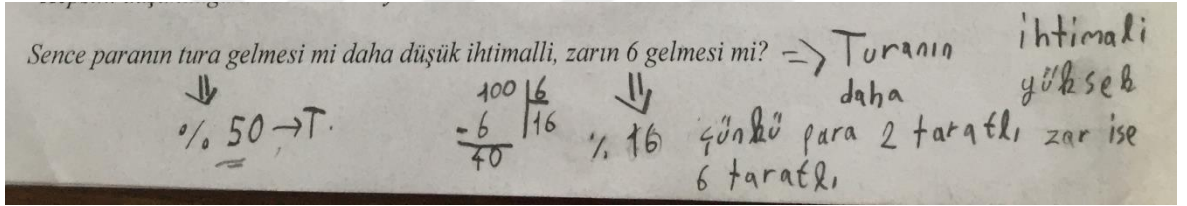 Sence paranın tura gelmesi mi daha düşük ihtimalli, zarın 6 gelmesi mi? => Turanın ihtimali
daha yüksek
% 50 → T.
100 | 6
- 6 | 16
40
% 16 çünkü para 2 taraflı zar ise
6 taraflı